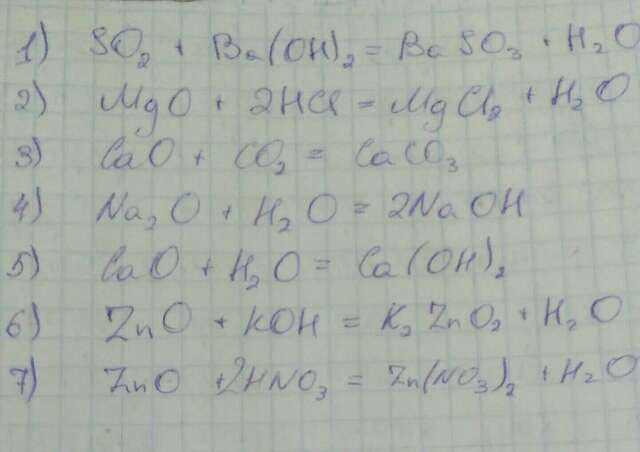 1) SO₂ + Ba(OH)₂ = BaSO₃ + H₂O
2) MgO + 2HCl = MgCl₂ + H₂O
3) CaO + CO₂ = CaCO₃
4) Na₂O + H₂O = 2NaOH
5) CaO + H₂O = Ca(OH)₂
6) ZnO + KOH = K₂ZnO₂ + H₂O
7) ZnO + 2HNO₃ = Zn(NO₃)₂ + H₂O